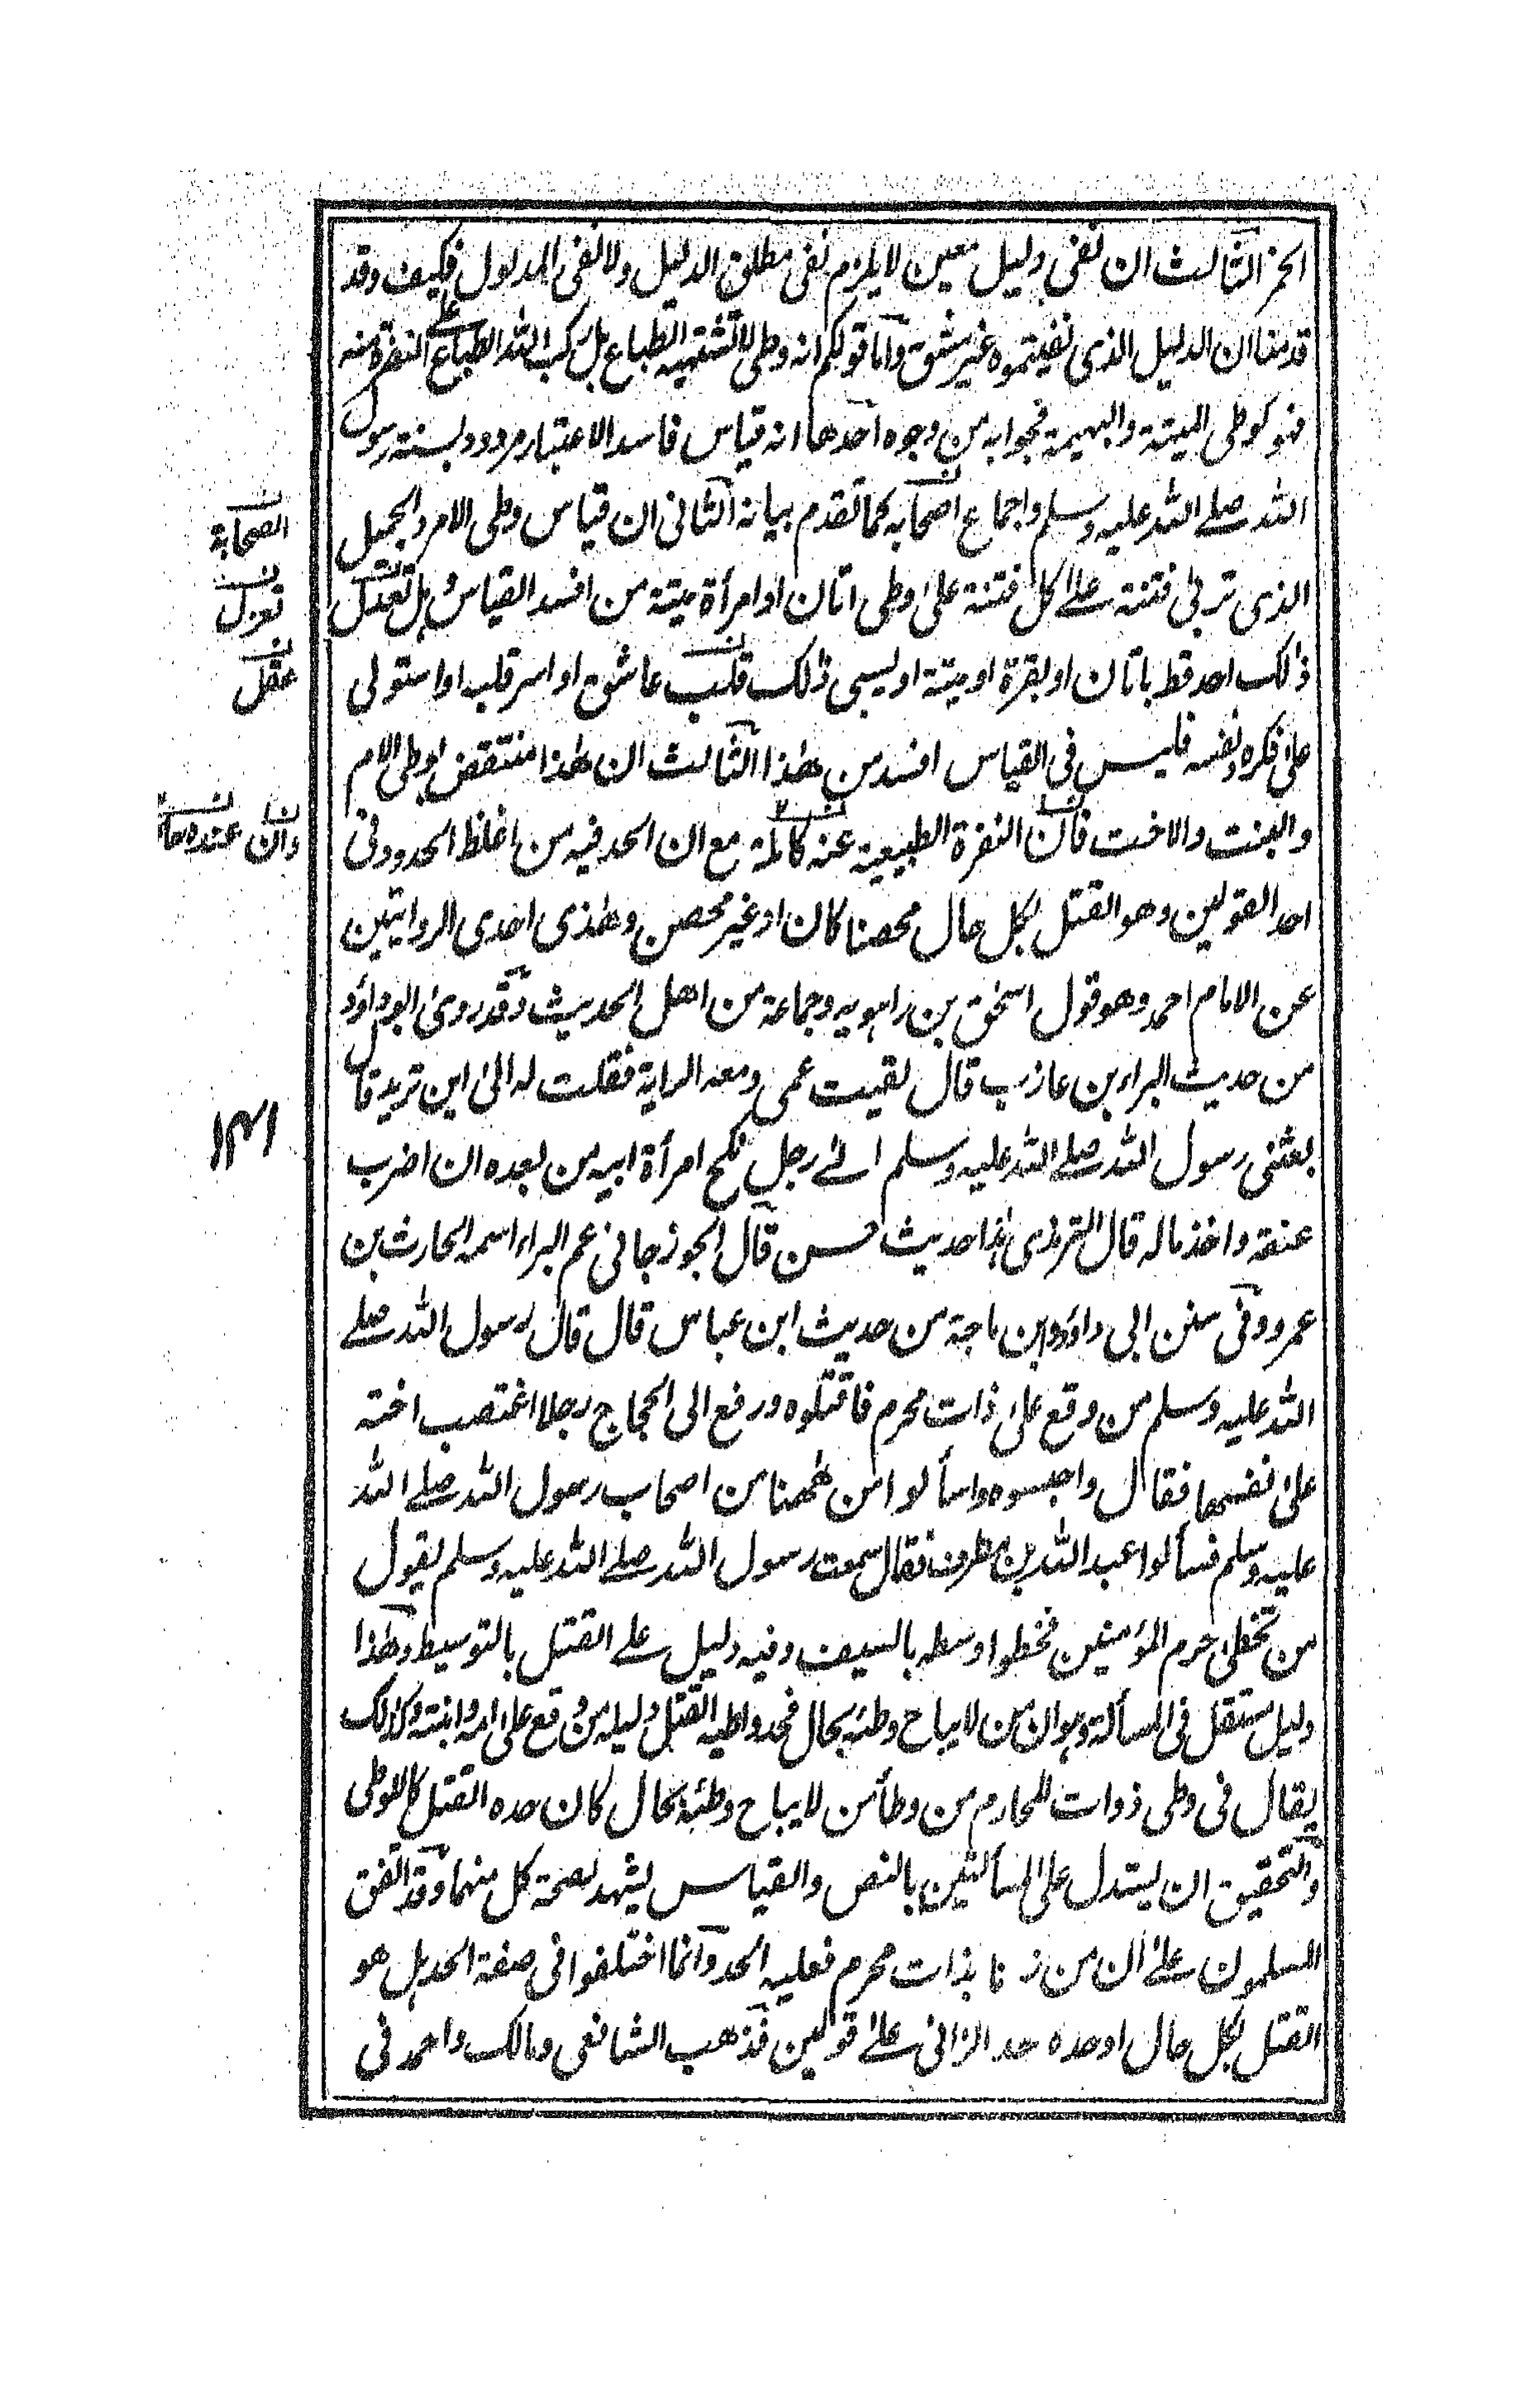 الحمر الثالث ان نفى دليل معين لا يلزم نفى مطلق الدليل ولا نفى المدلول فكيف وقد
قدمنا ان الدليل الذى نفيتموه غير منتف وأما قولكم انه وطى لا تشتهيه الطباع بل ركب الله الطباع على النفرة منه
فهو كوطى الميتة والبهيمة فجوابه من وجوه احدها انه قياس فاسد الاعتبار مردود بسنة رسول
الله صلے الله عليه وسلم واجماع اصحابه كما تقدم بيانه الثانى ان قياس وطى الامرد الجميل
الذى تربى فتنة علے كل فتنة على وطى اتان او امرأة ميتة من افسد القياس وهل تعدل
ذالك احد قط باتان او بقرة او ميتة او يسبى ذالك قلب عاشق او اسر قلبه او استولى
على فكره ونفسه فليس فى القياس افسد من هذا الثالث ان هذا منتقض بوطى الام
والبنت والاخت فان النفرة الطبيعية عنه كاملة مع ان الحد فيه من اغلظ الحدود فى
احد القولين وهو القتل بكل حال محصنا كان او غير محصن وهذى احدى الروايتين
عن الامام احمد وهو قول اسحق بن راهويه وجماعة من اهل الحديث وقد روى ابو داؤد
من حديث البراء بن عازب قال لقيت عمى ومعه الراية فقلت له الى اين تريد قال
بعثنى رسول الله صلے الله عليه وسلم الے رجل نكح امرأة ابيه من بعده ان اضرب
عنقه واخذ ماله قال الترمذى هذا حديث حسن قال الجوزجانى عم البراء اسمه الحارث بن
عمرو وفى سنن ابى داؤد وابن ماجة من حديث ابن عباس قال قال رسول الله صلے
الله عليه وسلم من وقع على ذات محرم فاقتلوه ورفع الى الحجاج رجلا اغتصب اخته
على نفسها فقال واحبسوه واسألوا من ههنا من اصحاب رسول الله صلے الله
عليه وسلم فسألوا عبد الله بن مطرف فقال سمعت رسول الله صلے الله عليه وسلم يقول
من تخطى حرم المؤمنين فخطوا وسطه بالسيف وفيه دليل علے القتل بالتوسيط وهذا
دليل مستقل فى المسألة وهو ان من لا يباح وطئه بحال فحد واطيه القتل دليله من وقع على امه وابنته وكذالك
يقال فى وطى ذوات المحارم من وطأ من لا يباح وطئه بحال كان حده القتل كاللوطى
والتحقيق ان يستدل على المسألتين بالنص والقياس يشهد لصحة كل منهما وقد اتفق
المسلمون علے ان من زنا بذات محرم فعليه الحد وانما اختلفوا فى صفة الحد هل هو
القتل بكل حال او حده حد الزانى علے قولين فذهب الشافعى ومالك واحمد فى
الصحابة
تعزل
عقل
وان عنده
١٣١